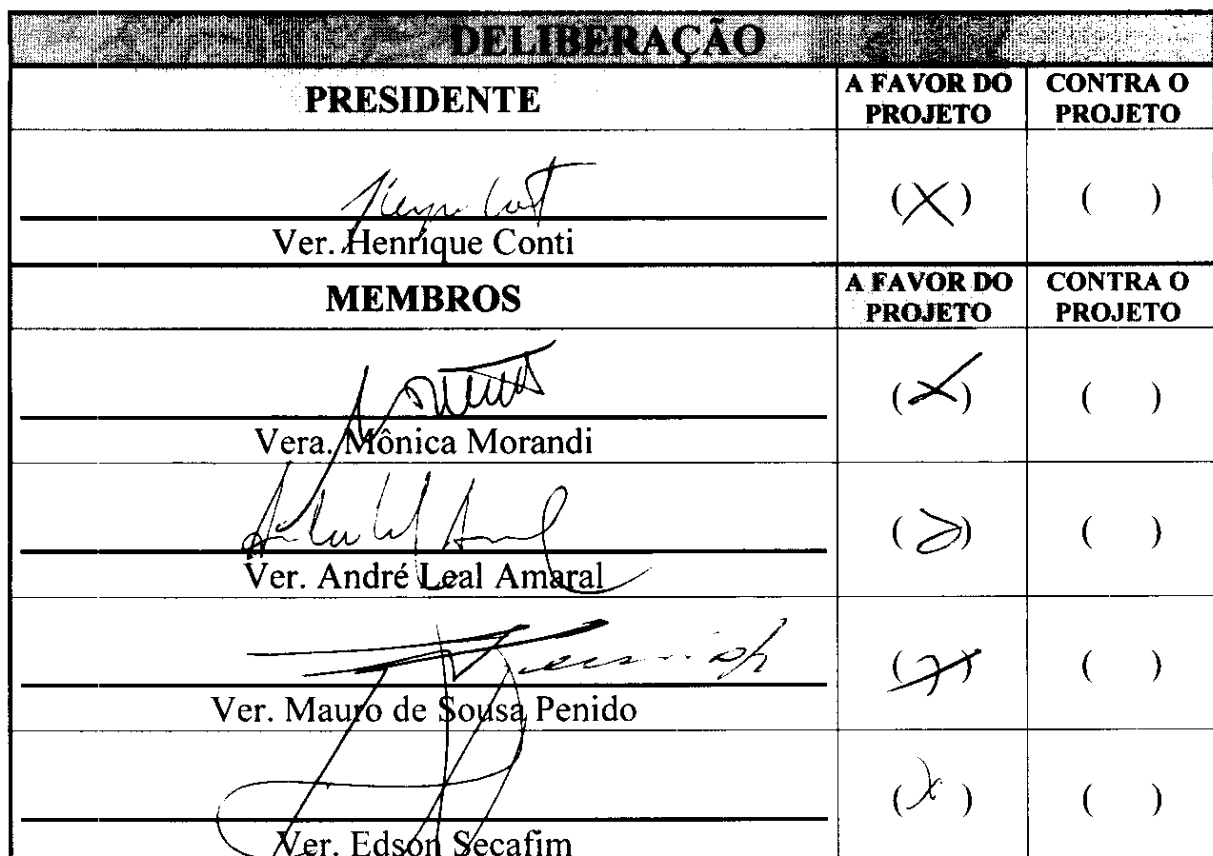 DELIBERAÇÃO
PRESIDENTE
A FAVOR DO PROJETO
CONTRA O PROJETO
(X)
( )
Ver. Henrique Conti
MEMBROS
A FAVOR DO PROJETO
CONTRA O PROJETO
(X)
( )
Vera. Mônica Morandi
( )
Ver. André Leal Amaral
( )
Ver. Mauro de Sousa Penido
(x)
( )
Ver. Edson Secafim